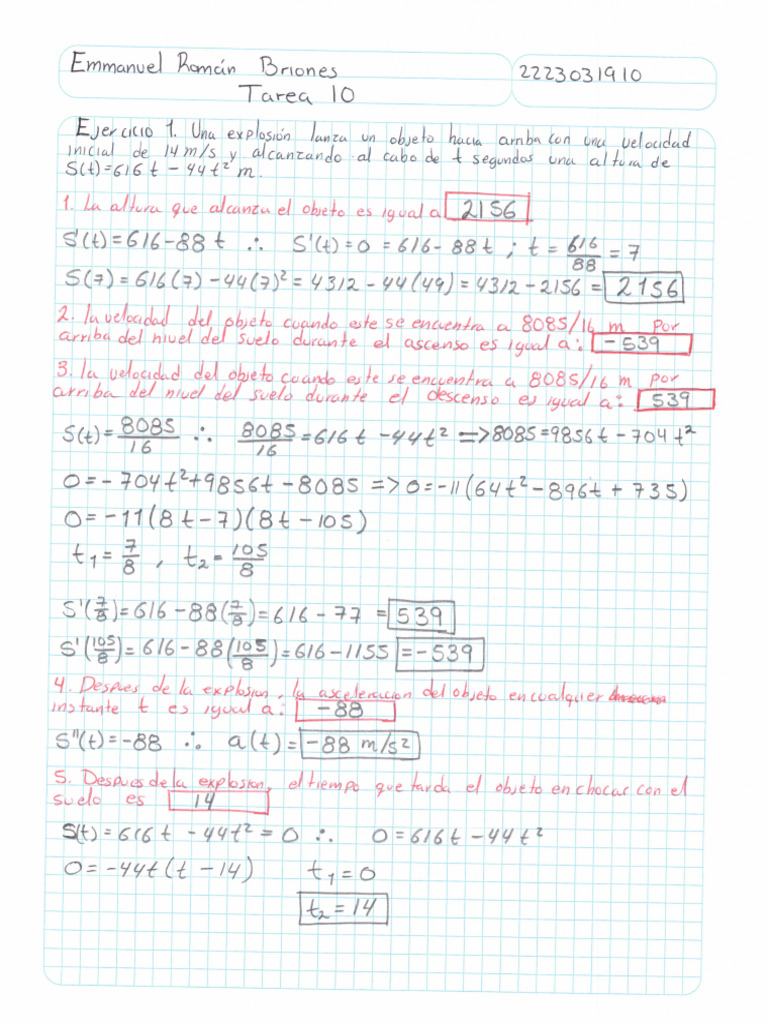 Emmanuel Román Briones
2223031910
Tarea 10
Ejercicio 1. Una explosión lanza un objeto hacia arriba con una velocidad
inicial de 14 m/s y alcanzando al cabo de t segundos una altura de
S(t)=616t-44t² m.
1. La altura que alcanza el objeto es igual a 2156
S'(t)=616-88t ∴ S'(t)=0=616-88t ; t=616/88=7
S(7)=616(7)-44(7)²=4312-44(49)=4312-2156=2156
2. La velocidad del objeto cuando este se encuentra a 8085/16 m por
arriba del nivel del suelo durante el ascenso es igual a: -539
3. La velocidad del objeto cuando este se encuentra a 8085/16 m por
arriba del nivel del suelo durante el descenso es igual a: 539
S(t)=8085/16 ∴ 8085/16=616t-44t² =>8085=9856t-704t²
0=-704t²+9856t-8085 => 0=-11(64t²-896t+735)
0=-11(8t-7)(8t-105)
t₁=7/8, t₂=105/8
S'(7/8)=616-88(7/8)=616-77=539
S'(105/8)=616-88(105/8)=616-1155=-539
4. Despues de la explosion, la asceleracion del objeto en cualquier
instante t es igual a: -88
S"(t)=-88 ∴ a(t)=-88 m/s²
5. Despues de la explosion, el tiempo que tarda el objeto en chocar con el
suelo es 14
S(t)=616t-44t²=0 ∴ 0=616t-44t²
0=-44t(t-14) t₁=0
t₂=14